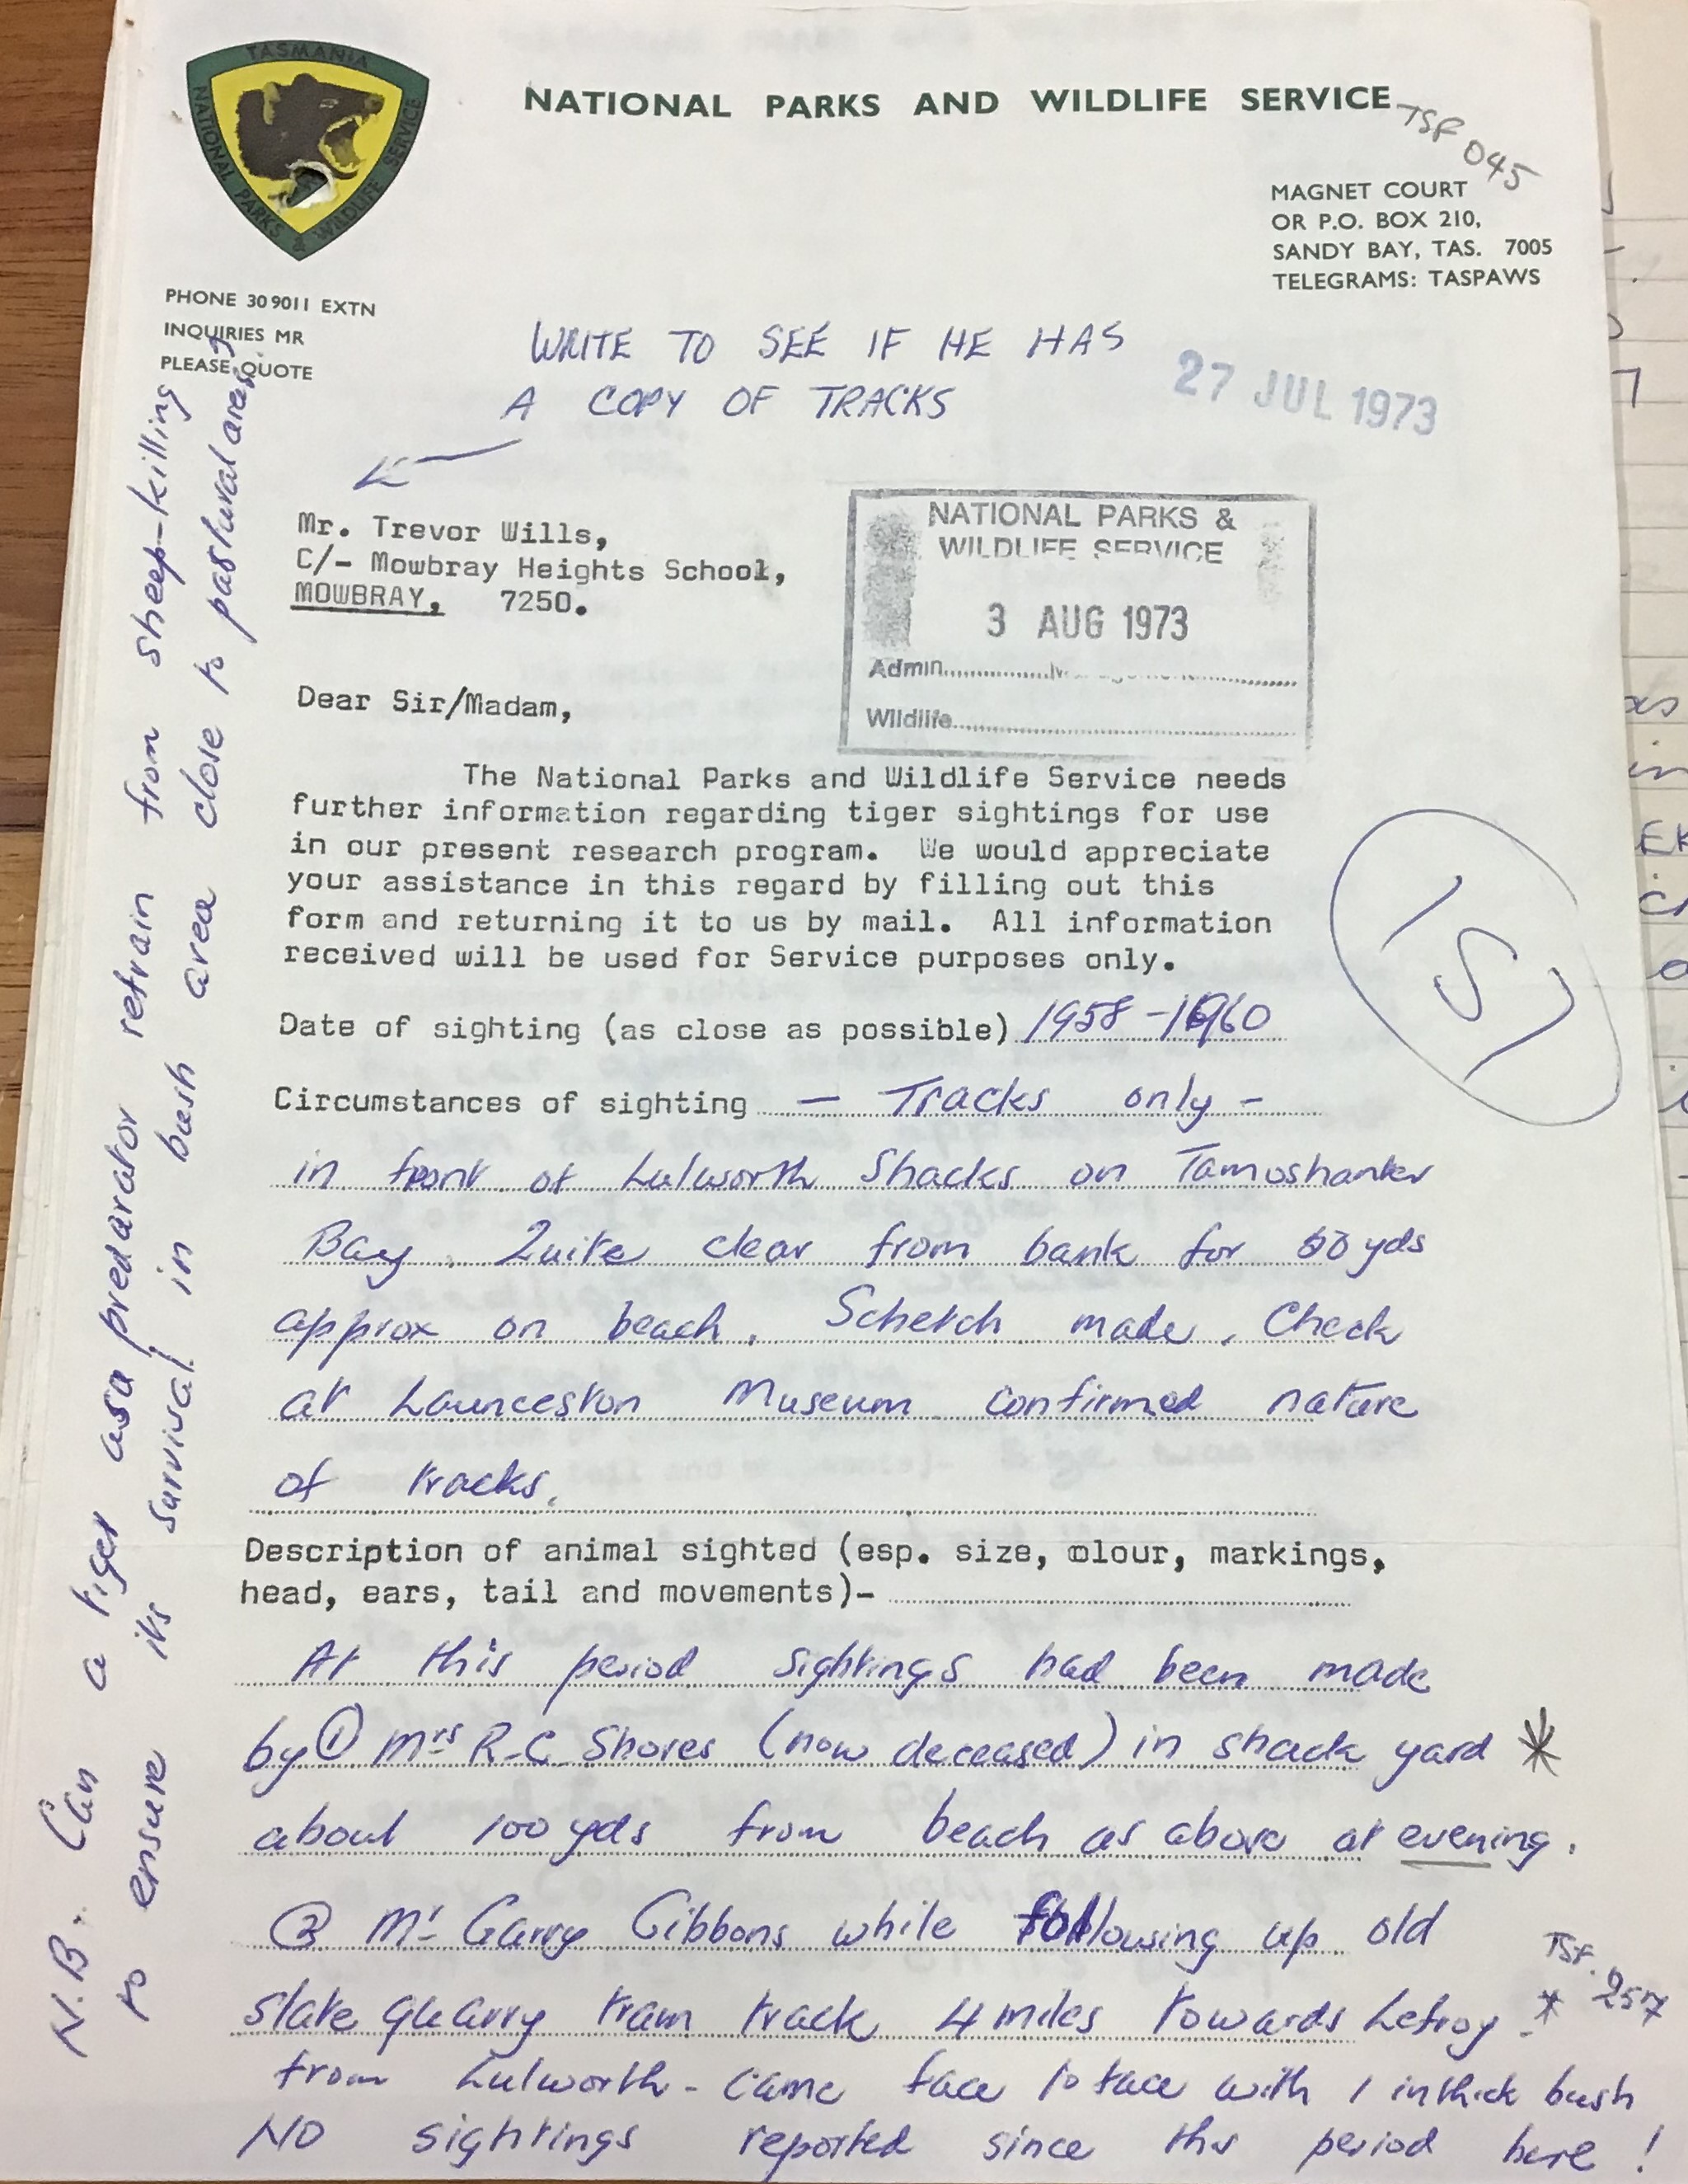 TASMANIA
NATIONAL PARKS & WILDLIFE SERVICE
NATIONAL PARKS AND WILDLIFE SERVICE
TSF 045
MAGNET COURT
OR P.O. BOX 210,
SANDY BAY, TAS. 7005
TELEGRAMS: TASPAWS
PHONE 30 9011 EXTN
INQUIRIES MR
PLEASE QUOTE
WRITE TO SEE IF HE HAS
A COPY OF TRACKS
27 JUL 1973
Mr. Trevor Wills,
C/- Mowbray Heights School,
MOWBRAY, 7250.
NATIONAL PARKS &
WILDLIFE SERVICE
3 AUG 1973
Admin
Wildlife
Dear Sir/Madam,
The National Parks and Wildlife Service needs
further information regarding tiger sightings for use
in our present research program. We would appreciate
your assistance in this regard by filling out this
form and returning it to us by mail. All information
received will be used for Service purposes only.
Date of sighting (as close as possible) 1958 - 1960
Circumstances of sighting — Tracks only -
in front of Lulworth Shacks on Tamoshanter
Bay. Quite clear from bank for 50 yds
approx on beach. Schetch made. Check
at Launceston Museum confirmed nature
of tracks.
Description of animal sighted (esp. size, colour, markings,
head, ears, tail and movements)-
At this period sightings had been made
by ① Mrs R-C Shores (now deceased) in shack yard *
about 100 yds from beach as above at evening.
② Mr Garry Gibbons while following up old
slate quarry tram track 4 miles towards Lefroy - * TSF. 257
from Lulworth - came face to face with 1 in thick bush
NO sightings reported since this period here !
N.B. Can a tiger as a predarator retrain from sheep-killing
to ensure its survival in bush area close to pastural area?